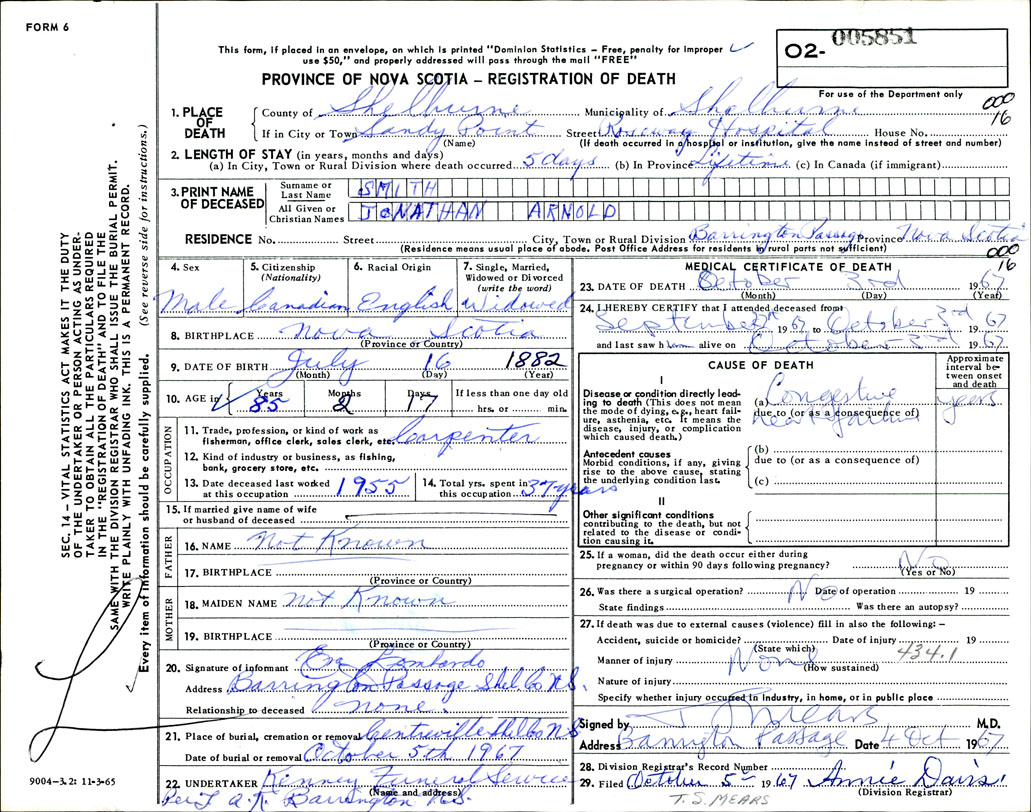 FORM 6
This form, if placed in an envelope, on which is printed "Dominion Statistics – Free, penalty for improper
use $50," and properly addressed will pass through the mail "FREE"
O2- 005851
For use of the Department only
PROVINCE OF NOVA SCOTIA – REGISTRATION OF DEATH
000
16
1. PLACE OF DEATH
County of Shelburne Municipality of Shelburne
If in City or Town Sandy Point Street Roseway Hospital House No.
(Name) (If death occurred in a hospital or institution, give the name instead of street and number)
2. LENGTH OF STAY (in years, months and days)
(a) In City, Town or Rural Division where death occurred 5 days (b) In Province Lifetime (c) In Canada (if immigrant)
3. PRINT NAME OF DECEASED
Surname or Last Name SMITH
All Given or Christian Names JONATHAN ARNOLD
RESIDENCE No. Street City, Town or Rural Division Barrington Passage Province Nova Scotia
(Residence means usual place of abode. Post Office Address for residents in rural parts not sufficient)
000
16
4. Sex Male
5. Citizenship (Nationality) Canadian
6. Racial Origin English
7. Single, Married, Widowed or Divorced (write the word) Widowed
8. BIRTHPLACE Nova Scotia
(Province or Country)
9. DATE OF BIRTH July 16 1882
(Month) (Day) (Year)
10. AGE in Years 85 Months 2 Days 17 If less than one day old
hrs. or min.
OCCUPATION
11. Trade, profession, or kind of work as
fisherman, office clerk, sales clerk, etc. Carpenter
12. Kind of industry or business, as fishing,
bank, grocery store, etc.
13. Date deceased last worked at this occupation 1955
14. Total yrs. spent in this occupation 37 years
15. If married give name of wife
or husband of deceased
FATHER
16. NAME Not Known
17. BIRTHPLACE
(Province or Country)
MOTHER
18. MAIDEN NAME Not Known
19. BIRTHPLACE
(Province or Country)
20. Signature of informant Eva Lombardo
Address Barrington Passage Shel Co N.S.
Relationship to deceased none.
21. Place of burial, cremation or removal Centreville Shel Co N S
Date of burial or removal October 5th 1967
22. UNDERTAKER Kinney Funeral Service
(Name and address)
Barrington N.S.
MEDICAL CERTIFICATE OF DEATH
23. DATE OF DEATH October 3rd 1967
(Month) (Day) (Year)
24. I HEREBY CERTIFY that I attended deceased from
September 1967 to October 3rd 1967
and last saw h im alive on October 3rd 1967
CAUSE OF DEATH
Approximate interval between onset and death
I
Disease or condition directly leading to death (This does not mean
the mode of dying, e.g., heart failure, asthenia, etc. It means the
disease, injury, or complication
which caused death.)
(a) Congestive years
due to (or as a consequence of)
heart failure
Antecedent causes
Morbid conditions, if any, giving
rise to the above cause, stating
the underlying condition last.
(b)
due to (or as a consequence of)
(c)
II
Other significant conditions
contributing to the death, but not
related to the disease or condition causing it.
25. If a woman, did the death occur either during
pregnancy or within 90 days following pregnancy? No
(Yes or No)
26. Was there a surgical operation? No Date of operation 19
State findings Was there an autopsy?
27. If death was due to external causes (violence) fill in also the following: –
Accident, suicide or homicide? Date of injury 19
(State which) 434.1
Manner of injury None
(How sustained)
Nature of injury
Specify whether injury occurred in industry, in home, or in public place
Signed by T S Mears M.D.
Address Barrington Passage Date 4 Oct 1967
28. Division Registrar's Record Number
29. Filed October 5 1967 Annie Davis
(Division Registrar)
T. S. MEARS
9004–3.2: 11-3-65
SEC. 14 – VITAL STATISTICS ACT MAKES IT THE DUTY
OF THE UNDERTAKER OR PERSON ACTING AS UNDER-
TAKER TO OBTAIN ALL THE PARTICULARS REQUIRED
IN THE "REGISTRATION OF DEATH" AND TO FILE THE
SAME WITH THE DIVISION REGISTRAR WHO SHALL ISSUE THE BURIAL PERMIT.
WRITE PLAINLY WITH UNFADING INK. THIS IS A PERMANENT RECORD.
Every item of information should be carefully supplied. (See reverse side for instructions.)